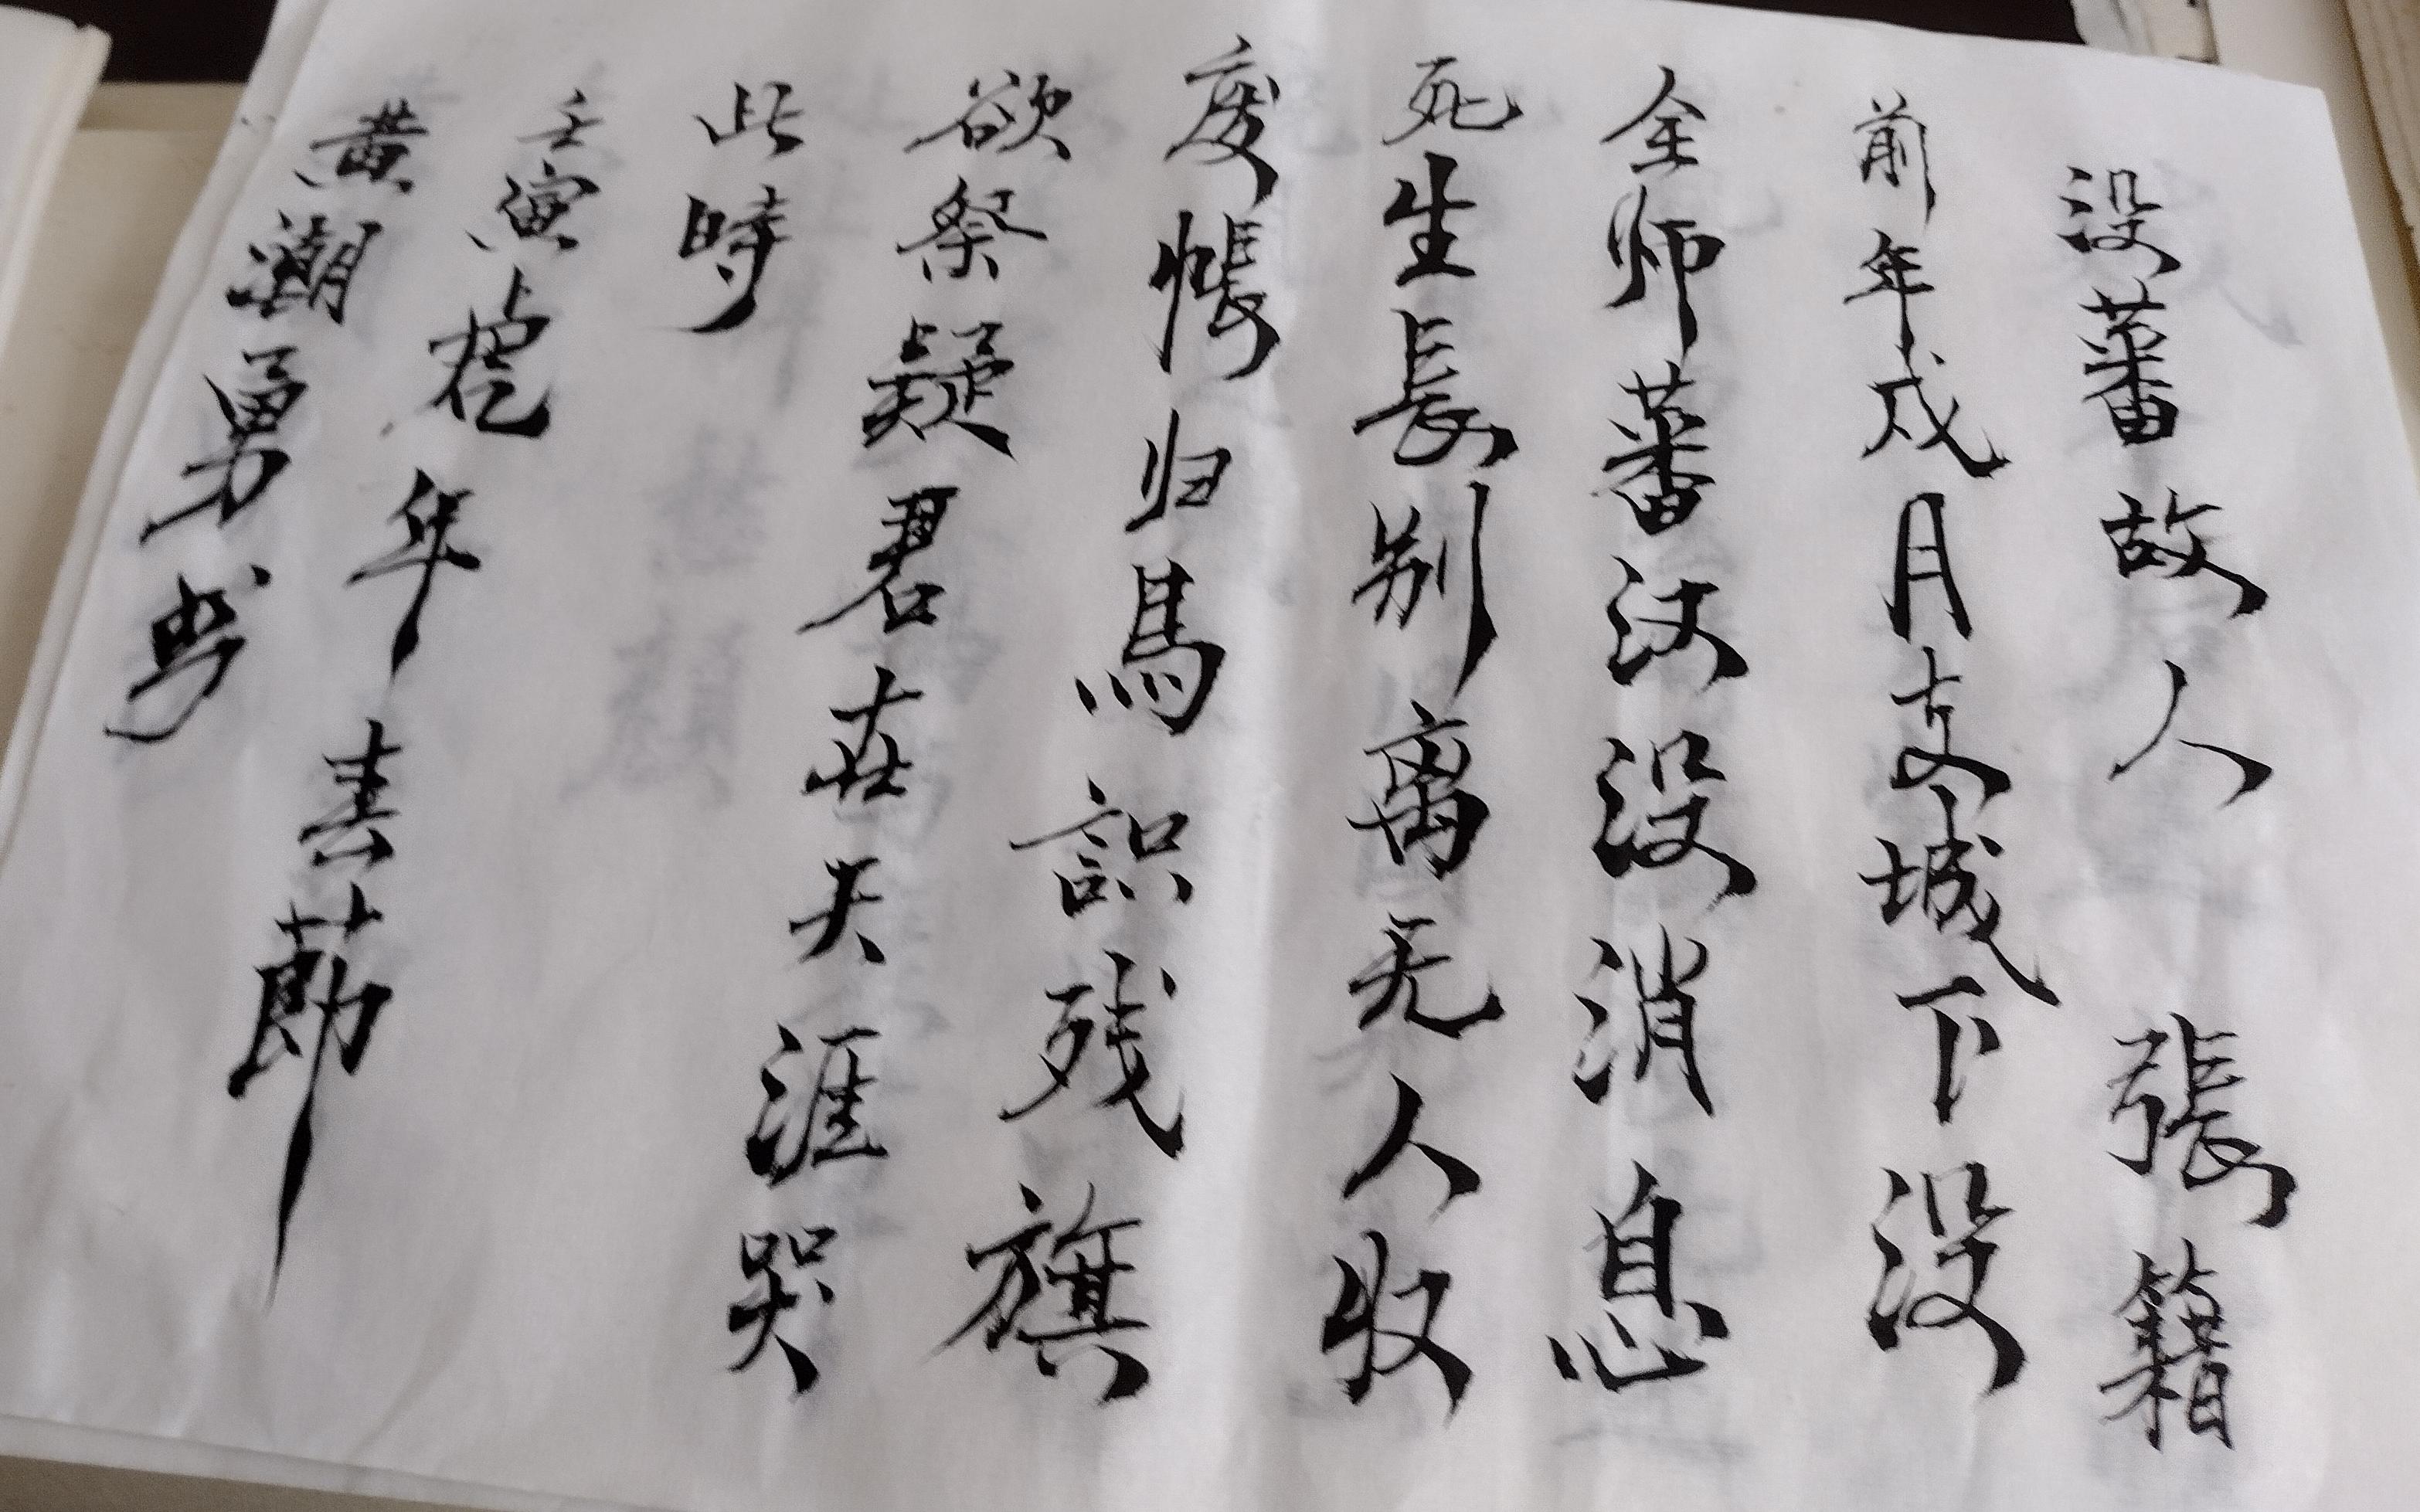 没蕃故人 張籍
前年戍月支城下没
全师蕃汉没消息
死生長别离无人收
废帳归馬識残旗
欲祭疑君在天涯哭
此時
壬寅虎年春節
黄潮勇书